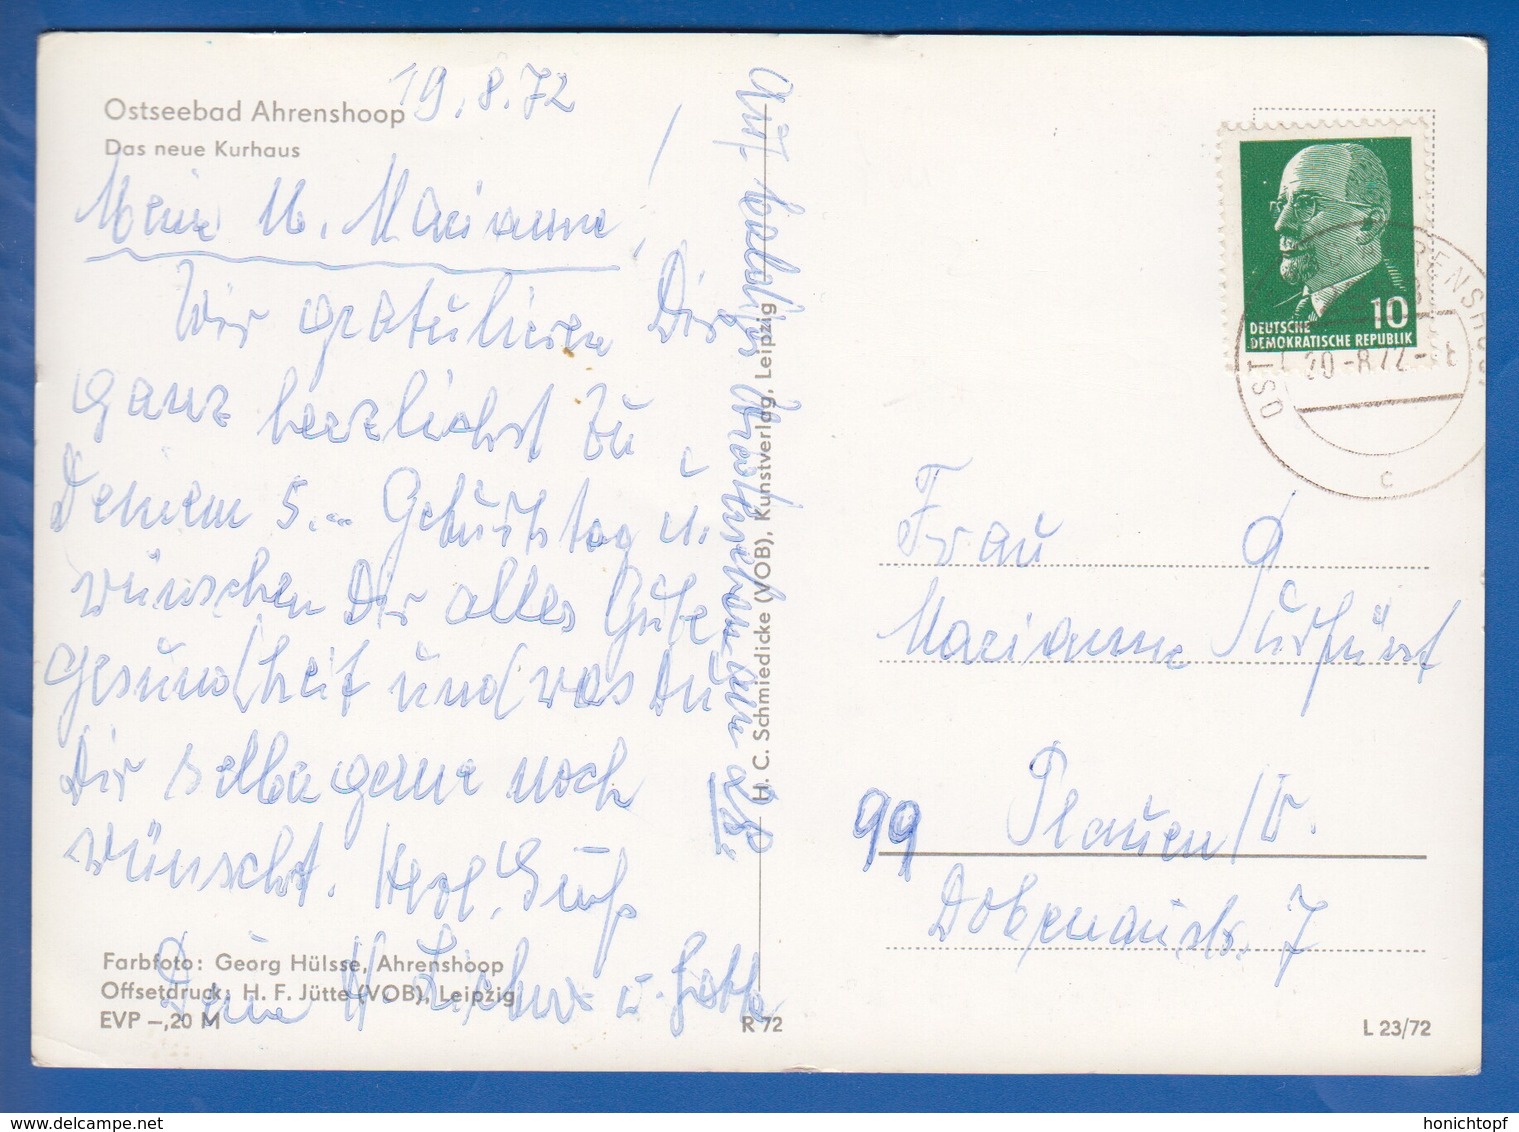 19.8.72
Ostseebad Ahrenshoop
Das neue Kurhaus
Meine M. Marianne!
Wir gratulieren Dir
ganz herzlichst zu
Deinem 5... Geburtstag u.
wünschen Dir alles Gute
Gesundheit und was Du
Dir selbst gerne noch
wünscht. Herzl. Gruß
Deine u.
Auf baldiges Wiedersehen
Farbfoto: Georg Hülsse, Ahrenshoop
Offsetdruck: H. F. Jütte (VOB), Leipzig
EVP –,20 M
R 72
H. C. Schmiedicke (VOB), Kunstverlag, Leipzig
10
DEUTSCHE
DEMOKRATISCHE REPUBLIK
OST AHRENSHOOP
20.-8.72
c
Frau
Marianne Kurfürst
99 Plauen/V.
Dobenaustr. 7
L 23/72
delcampe.net
honichtopf